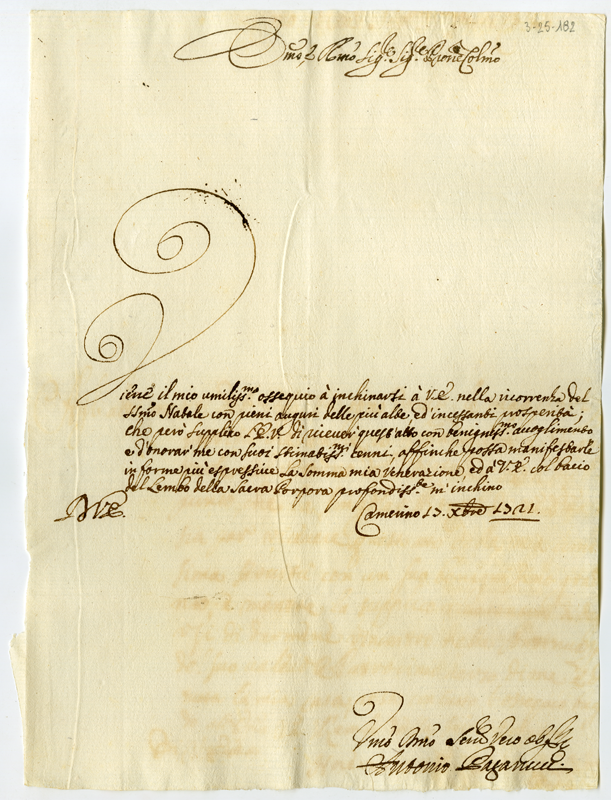 3-25-182
Emo, e Rmo Sig.re Sig.re Prone Colmo
Viene il mio umiliss.mo ossequio à inchinarsi à V.E. nella ricorrenza del
SSmo Natale con veri auguri delle più alte, ed' incessanti prosperità;
che però supplico l'E.V. di ricever quest'atto con benigniss.mo accoglimento
e d'honorarme con suoi stimabiss.mi cenni, affinche possa manifestarle
in forme più espressive la somma mia Venerazione, ed à V.E. col bacio
del Lembo della Sacra Porpora profondiss.te m'inchino
D V.E.
Camerino 13. Xbre 1721.
Vmo Dmo Ser.re Vero obl.
Antonio